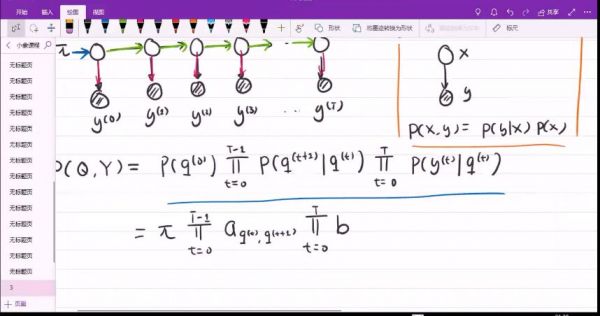 开始
插入
绘图
视图
形状
将墨迹转换为形状
标尺
共享
小象课程
无标题页
无标题页
无标题页
无标题页
无标题页
无标题页
无标题页
无标题页
无标题页
无标题页
无标题页
无标题页
3
+ 页面
π
y⁽⁰⁾ y⁽¹⁾ y⁽²⁾ y⁽³⁾ ... y⁽ᵀ⁾
x
y
P(x,y) = P(y|x) P(x)
P(Q,Y) = P(q⁽⁰⁾) ∏_{t=0}^{T-1} P(q⁽ᵗ⁺¹⁾|q⁽ᵗ⁾) ∏_{t=0}^{T} P(y⁽ᵗ⁾|q⁽ᵗ⁾)
= π ∏_{t=0}^{T-1} a_{q⁽ᵗ⁾,q⁽ᵗ⁺¹⁾} ∏_{t=0}^{T} b